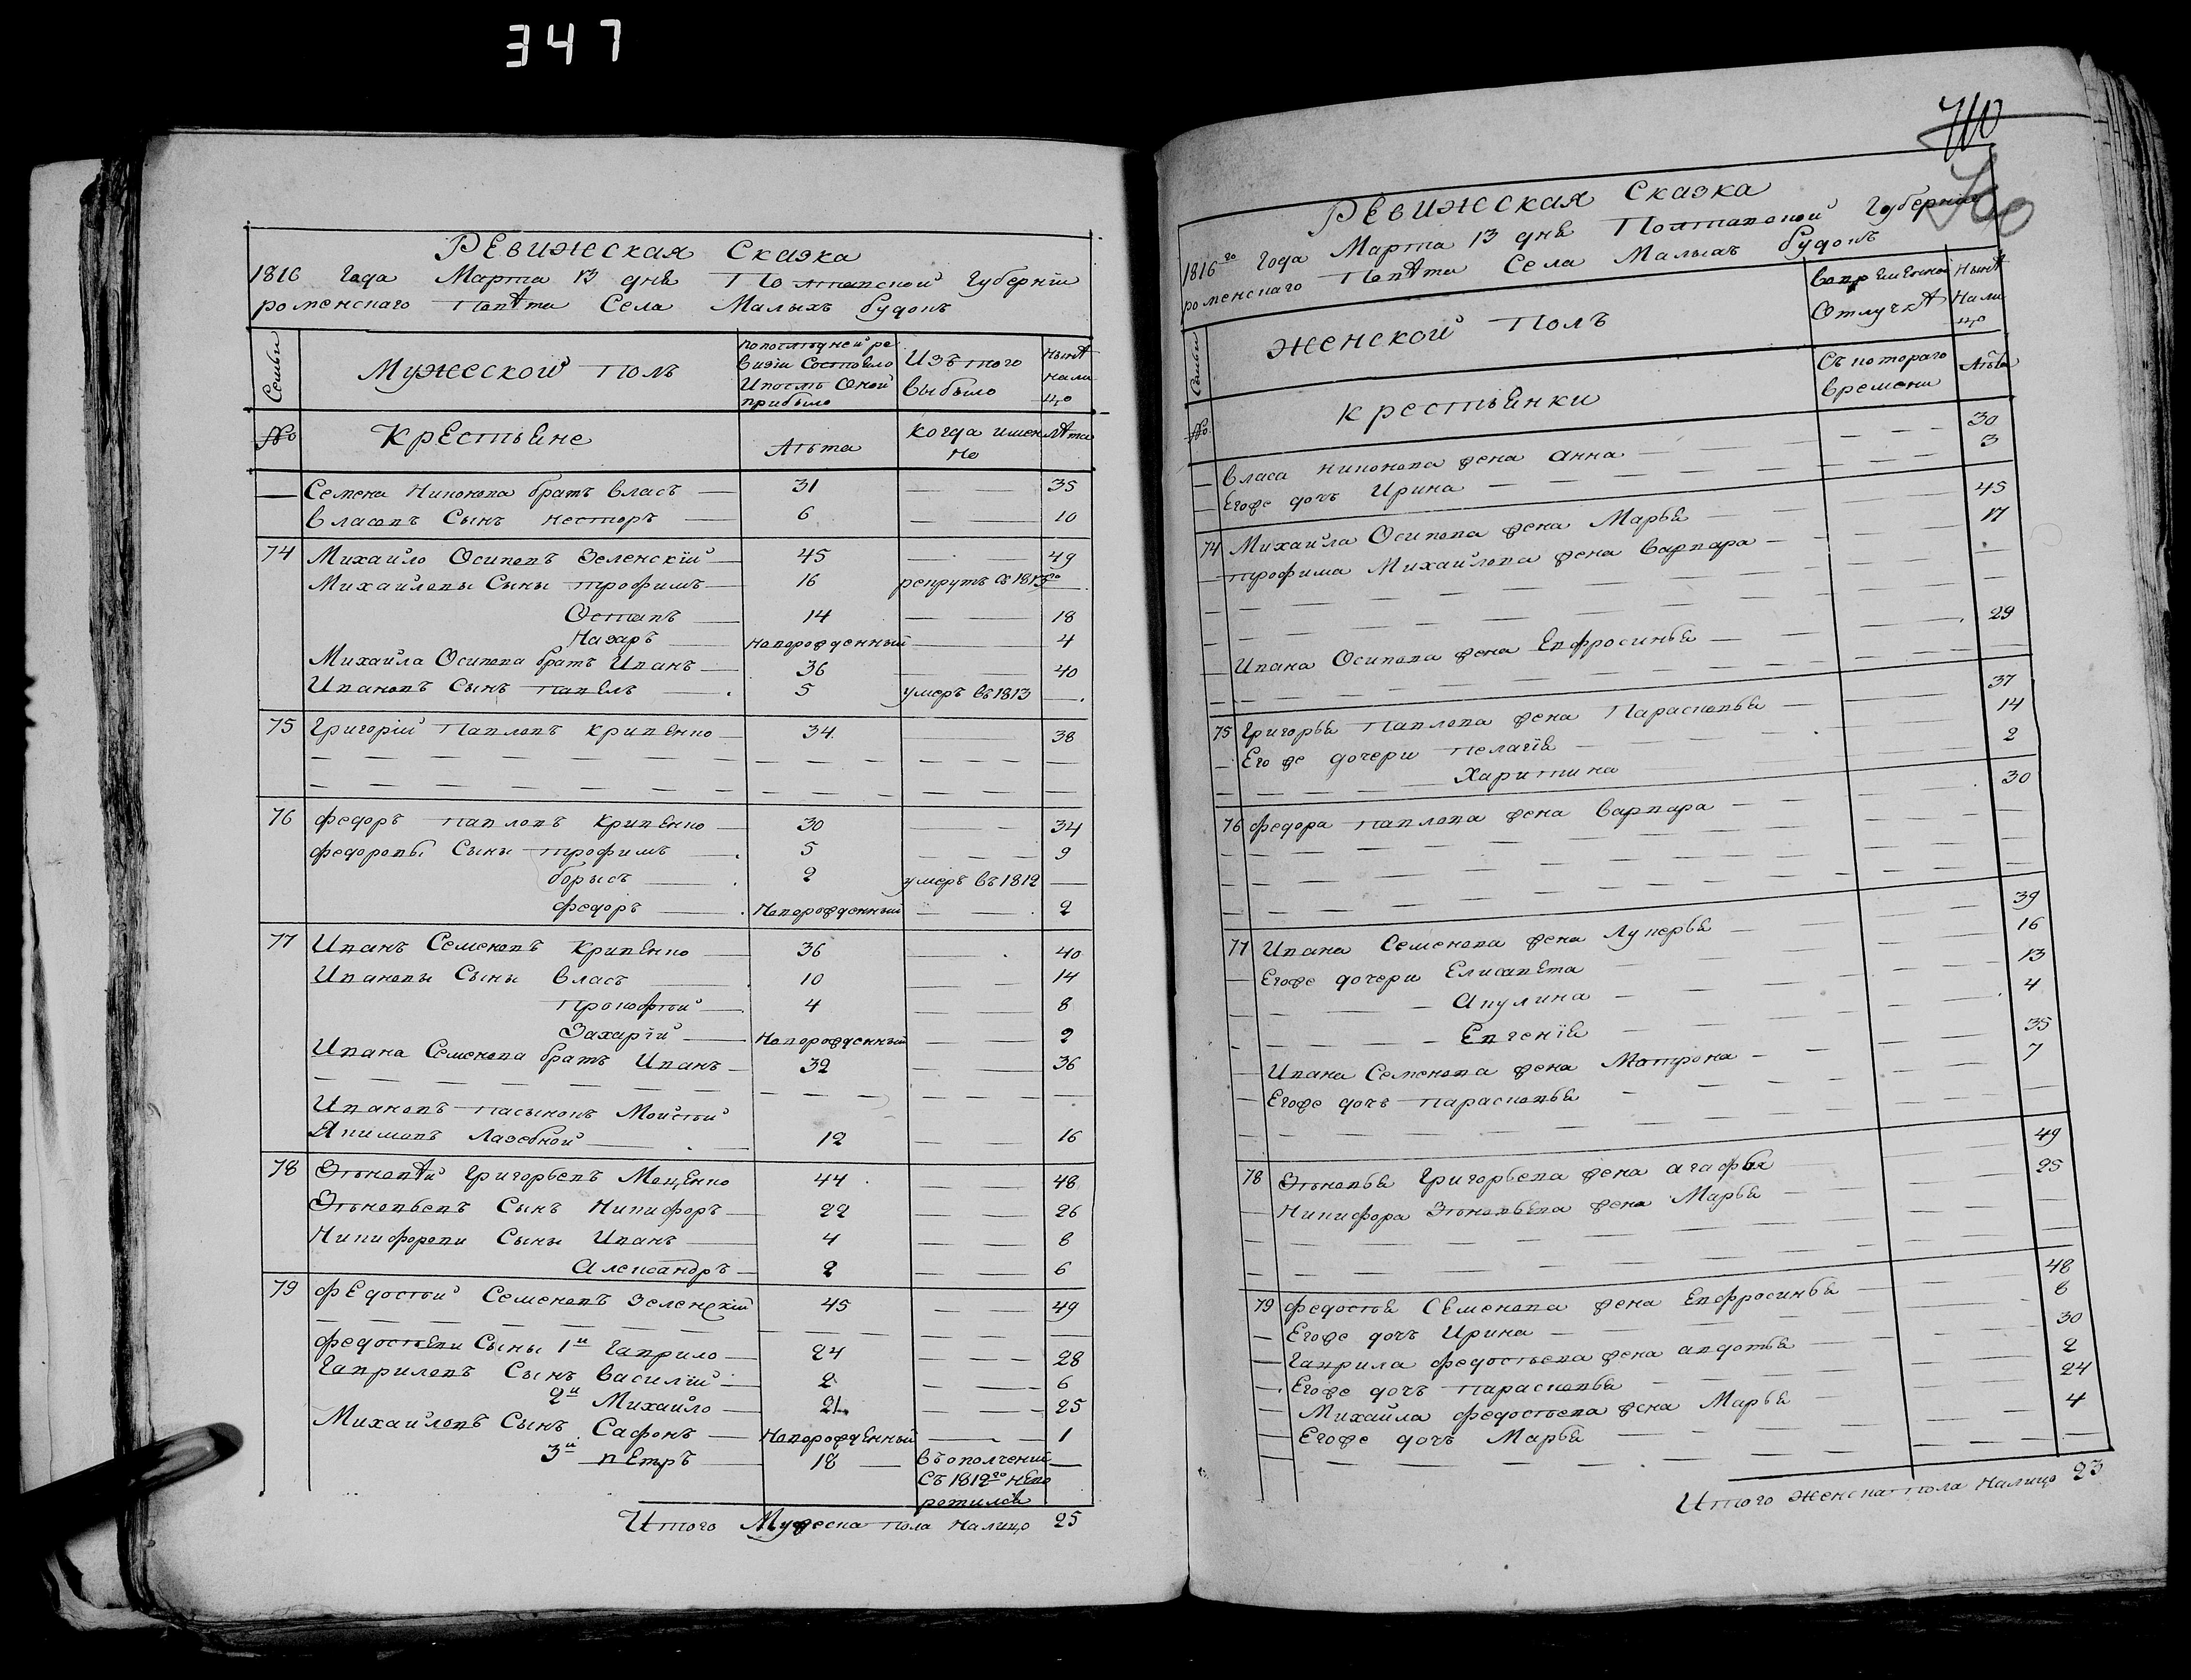 347
РЕвижеская Сказка
1816 года Марта 13 дня Полтавской Губерніи
роменскаго Повѣта Села Малыхъ будокъ
Семьи
Мужеской полъ
попослѣдней ре
визіи Состояло
Ипослѣ Оной
прибыло
Изъ того
выбыло
нынѣ
нали
цо
№
Крестьяне
Лѣта
когда имен
но
лѣта
— Семена Никонова братъ власъ — 31 — 35
власовъ Сынъ несторъ — 6 — 10
74 Михайло Осиповъ Зеленскій — 45 — 49
Михайловы Сыны трофимъ — 16 рекрутъ С 1813го —
Остапъ — 14 — 18
Назаръ — Новорожденный — 4
Михайла Осипова братъ Иванъ — 36 — 40
Ивановъ Сынъ павелъ — 5 умеръ въ 1813 —
75 Григорій Павловъ кривенко — 34 — 38
76 федоръ павловъ кривенко — 30 — 34
федоровы Сыны трофимъ — 5 — 9
борысъ — 2 умеръ въ 1812 —
федоръ — Новорожденный — 2
77 Иванъ Семеновъ кривенко — 36 — 40
Ивановы Сыны власъ — 10 — 14
Прокофтой — 4 — 8
Захарій — Новорожденный — 2
Ивана Семенова братъ Иванъ — 32 — 36
Ивановъ пасынокъ Мойстой
Якимовъ Лазебной — 12 — 16
78 Григорьевъ Маценко 44 — 48
Сынъ Никифоръ — 22 — 26
Никифорови Сыны Иванъ — 4 — 8
Александръ — 2 — 6
79 фЕдостой Семеновъ Зеленскій 45 — 49
федостьеви Сыны 1й гаврило — 24 — 28
Гавриловъ Сынъ василій — 2 — 6
2й Михайло — 21 — 25
Михайловъ Сынъ Сафонъ — Новорожденный — 1
3й пЕтръ — 18 — въ ополченій —
Съ 1812го НЕво
ротился
Итого Мужеска пола налицо 25
710
РЕвижеская Сказка
1816го года Марта 13 дня Полтавской Губерніи
роменскаго Повѣта Села Малыхъ будокъ
Семьи
Женской полъ
вовременной
Отлучкѣ
Нынѣ
Нали
цо
№
крестьянки
Съ котораго
времени
Лѣта
— власа никонова жена анна — 30
— Егоже дочъ Ирина — 3
74 Михайла Осипова жена Марья — 45
— трофима Михайлова жена варвара — 17
— Ивана Осипова жена Евфросинья — 29
75 Григорья Павлова жена Парасковья — 37
— Его же дочери пелагія — 14
Харитина 2
76 федора павлова жена варвара — 30
77 Ивана Семенова жена Лукерья — 39
— Егоже дочери Елисавета — 16
— Акулина — 13
— Евгенія — 4
— Ивана Семенова жена Мотрона — 35
— Егоже дочъ парасковья — 7
78 Григорьева жена агафья 49
— Никифора жена Марья — 25
79 федостья СЕменова жена Евфросинья — 48
— Егоже дочъ Ирина — 8
— Гаврила федостьева жена авдотья — 30
— Егоже дочъ парасковья — 2
— Михайла федостьева жена Марья — 24
— Егоже дочъ Марья — 4
Итого женска пола налицо 23